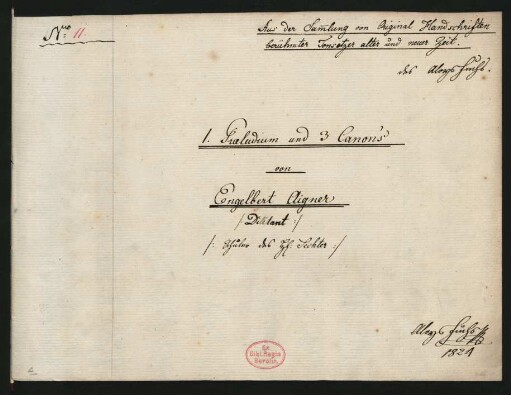 Nro 11.
Aus der Samlung von Original Handschriften
berühmter Tonsetzer alter und neuer Zeit.
des Aloys Fuchs.
1. Præludium und 3 Canon's
von
Engelbert Aigner
/: Dilétant :/
/: Schüler des H: Sechter :/
Aloys Fuchs
1821
Ex
Bibl. Regia
Berolin.